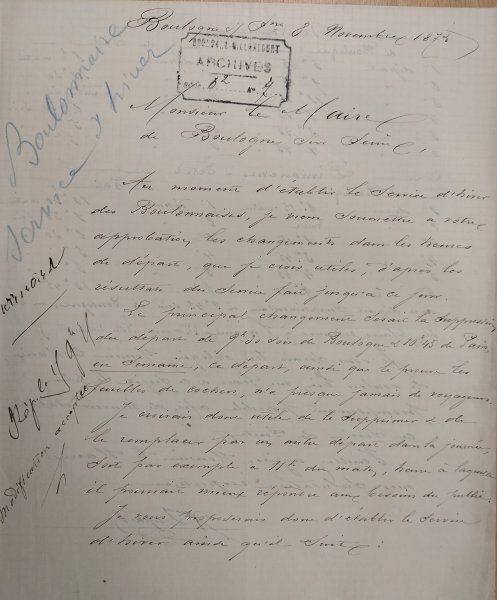 Boulogne s/ Seine 8 Novembre 187
BOULOGNE-BILLANCOURT
ARCHIVES
Boulonnaise
Service d'hiver
Monsieur le Maire
de Boulogne sur Seine,
Au moment d'établir le Service d'hiver
des Boulonnaises, je viens soumettre à votre
approbation, les changements dans les heures
de départ, que je crois utiles, d'après les
résultats du Service fait jusqu'à ce jour.
Le principal changement serait la suppression
du départ de 9h30 soir de Boulogne & 10h45 de Paris,
en Semaine, ce départ, ainsi que le prouve les
feuilles de cochers, n'a presque jamais de voyageurs.
Je croirais donc utile de le supprimer & de
le remplacer par un autre départ dans la journée,
soit par exemple à 11h du matin, heure à laquelle
il pourrait mieux répondre aux besoins du public.
Je vous proposerais donc d'établir le Service
d'hiver ainsi qu'il suit :
Répilo
modification acceptée